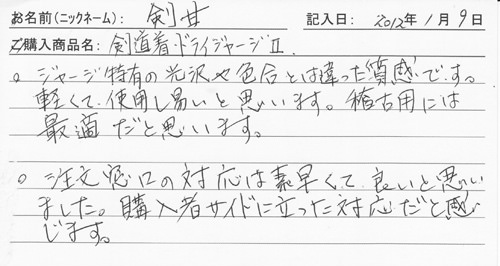 お名前(ニックネーム): 剣甘 記入日: 2012年1月9日
ご購入商品名: 剣道着・ドライジャージⅡ.
。ジャージ特有の光沢や色合とは違った質感です。
軽くて使用し易いと思います。稽古用には
最適だと思います。
。注文窓口の対応は素早くて良いと思い
ました。購入者サイドに立った対応だと感
じます。